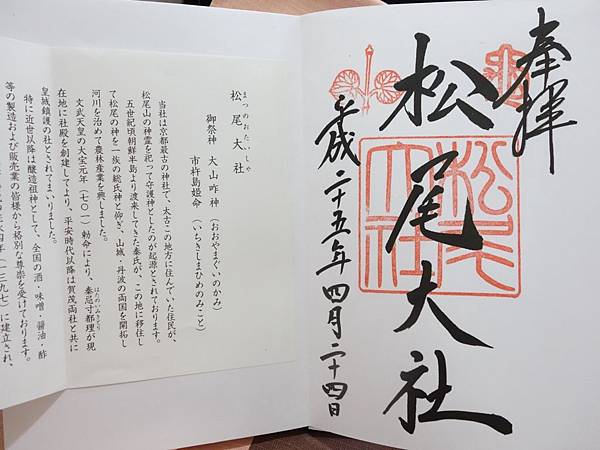 奉拝
松尾大社
平成二十五年四月二十四日
松尾大社
まつのおたいしゃ
松尾大社
御祭神 大山咋神(おおやまぐいのかみ)
市杵島姫命(いちきしまひめのみこと)
当社は京都最古の神社で、太古この地方に住んでいた住民が、
松尾山の神霊を祀って守護神としたのが起源とされております。
五世紀頃朝鮮半島より渡来してきた秦氏が、この地に移住し
て松尾の神を一族の総氏神と仰ぎ、山城・丹波の両国を開拓し
河川を治めて農林産業を興しました。
文武天皇の大宝元年(七〇一)勅命により、秦忌寸都理が現
はたのいみきとり
在地に社殿を創建してより、平安時代以降は賀茂両社と共に
皇城鎮護の社とされてまいりました。
特に近世以降は醸造祖神として、全国の酒・味噌・醤油・酢
等の製造および販売業の皆様から格別な尊崇を受けております。
(一三九七)に建立され、